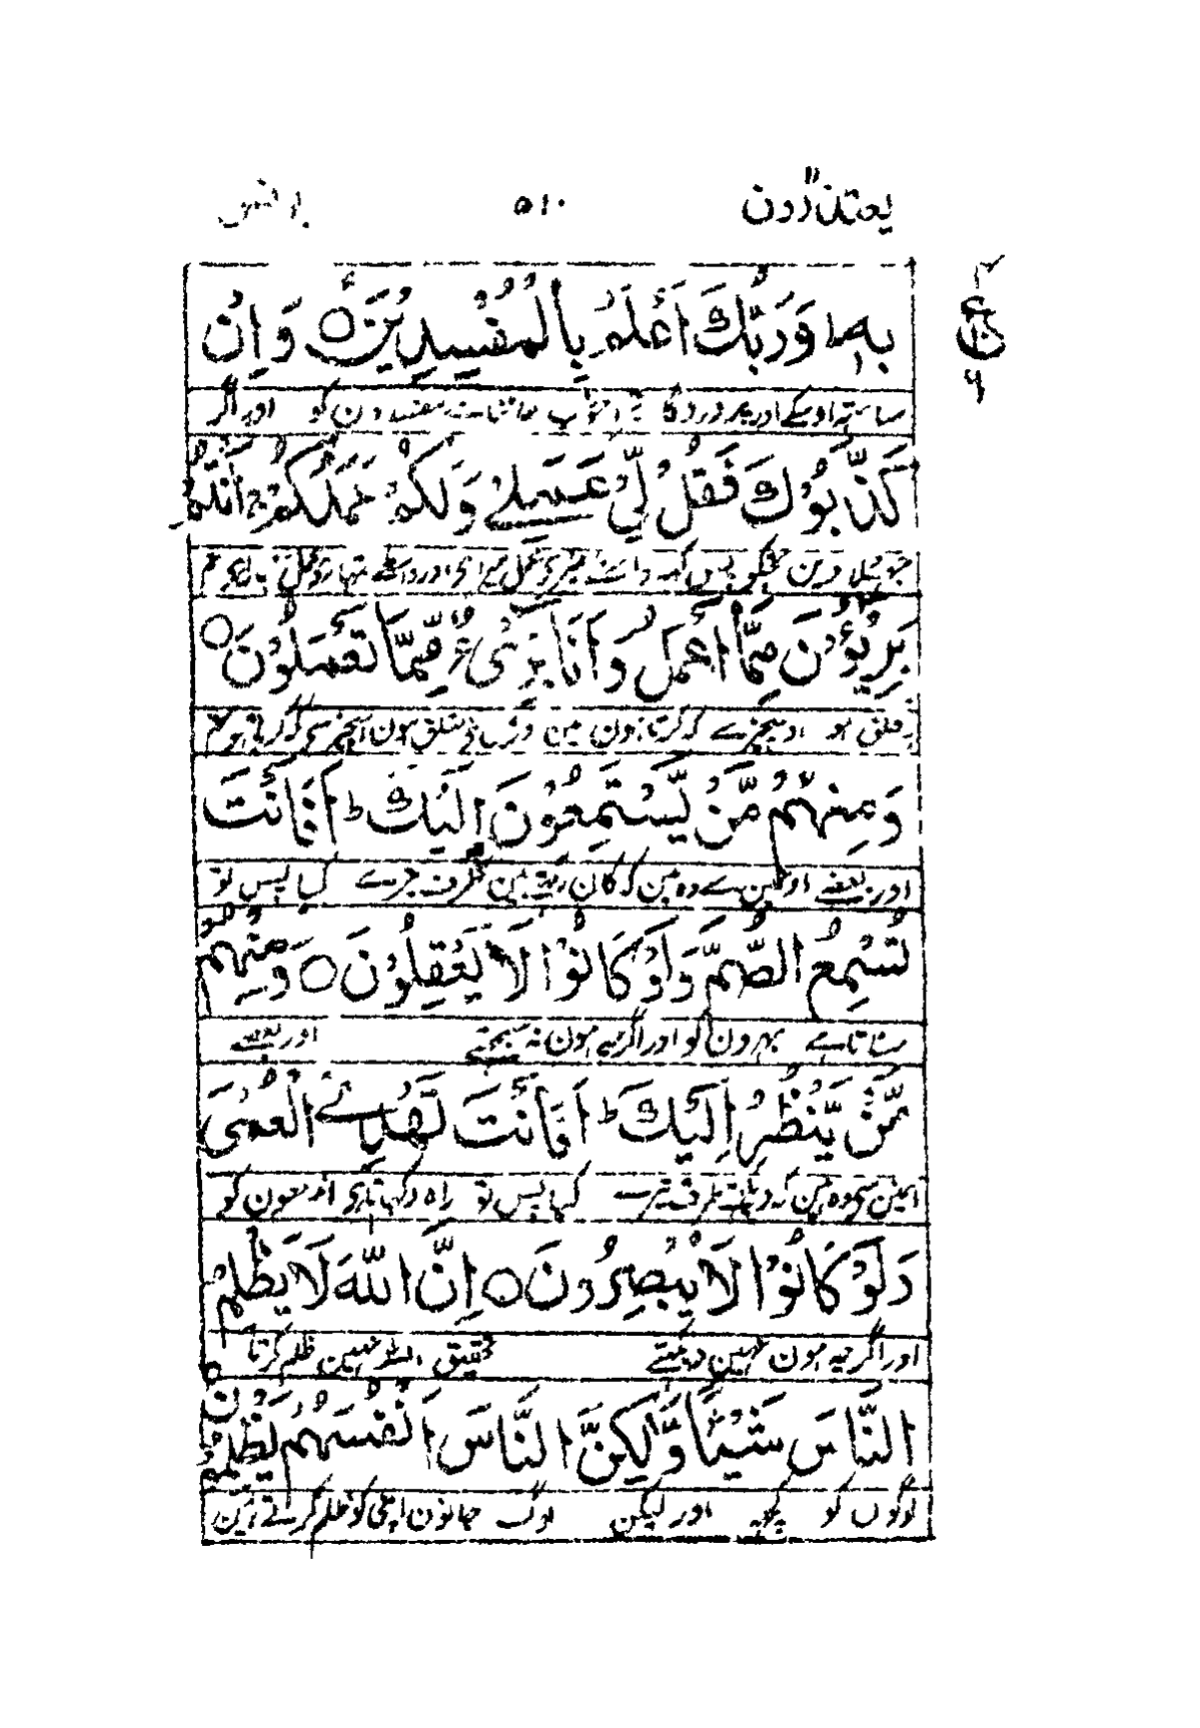 یعتذرون ۱۱ ۵۱۰ یونس ۱۰
بِهٖ ؕ وَرَبُّكَ اَعْلَمُ بِالْمُفْسِدِيْنَ ۠ وَاِنْ
ساتہ اوسکے اور پروردگار خوب جانتا ہے مفسدون کو اور اگر
كَذَّبُوْكَ فَقُلْ لِّيْ عَمَلِيْ وَلَكُمْ عَمَلُكُمْ ۚ اَنْتُمْ
جھٹلاوین تجکو پس کہہ واسطے میرے عمل میرا ہی اور واسطے تمہارے عمل تمہارا تم
بَرِيْٓـُٔوْنَ مِمَّآ اَعْمَلُ وَاَنَا بَرِيْٓءٌ مِّمَّا تَعْمَلُوْنَ ○
بے تعلق ہو اوس چیز سے کہ کرتا ہون مین اور مین بے تعلق ہون اوس چیز سی کہ کرتے ہو تم
وَمِنْهُمْ مَّنْ يَّسْتَمِعُوْنَ اِلَيْكَ ؕ اَفَاَنْتَ
اور بعضے اونمین سے وہ ہین کہ کان رکہتے ہین طرف تیرے کیا پس تو
تُسْمِعُ الصُّمَّ وَلَوْ كَانُوْا لَا يَعْقِلُوْنَ ○ وَمِنْهُمْ
سناتا ہے بہرون کو اور اگرچہ ہون نہ سمجہتے اور بعضے
مَّنْ يَّنْظُرُ اِلَيْكَ ؕ اَفَاَنْتَ تَهْدِي الْعُمْيَ
اونمین سی وہ ہین کہ دیکہتے طرف تیرے کیا پس تو راہ دکہاتا ہی اندہون کو
وَلَوْ كَانُوْا لَا يُبْصِرُوْنَ ○ اِنَّ اللّٰهَ لَا يَظْلِمُ
اور اگرچہ ہون نہین دیکہتے تحقیق اللہ نہین ظلم کرتا
النَّاسَ شَيْـًٔا وَّلٰكِنَّ النَّاسَ اَنْفُسَهُمْ يَظْلِمُوْنَ
لوگوں کو کچہہ اور لیکن لوگ جانون اپنی کو ظلم کرتے ہین